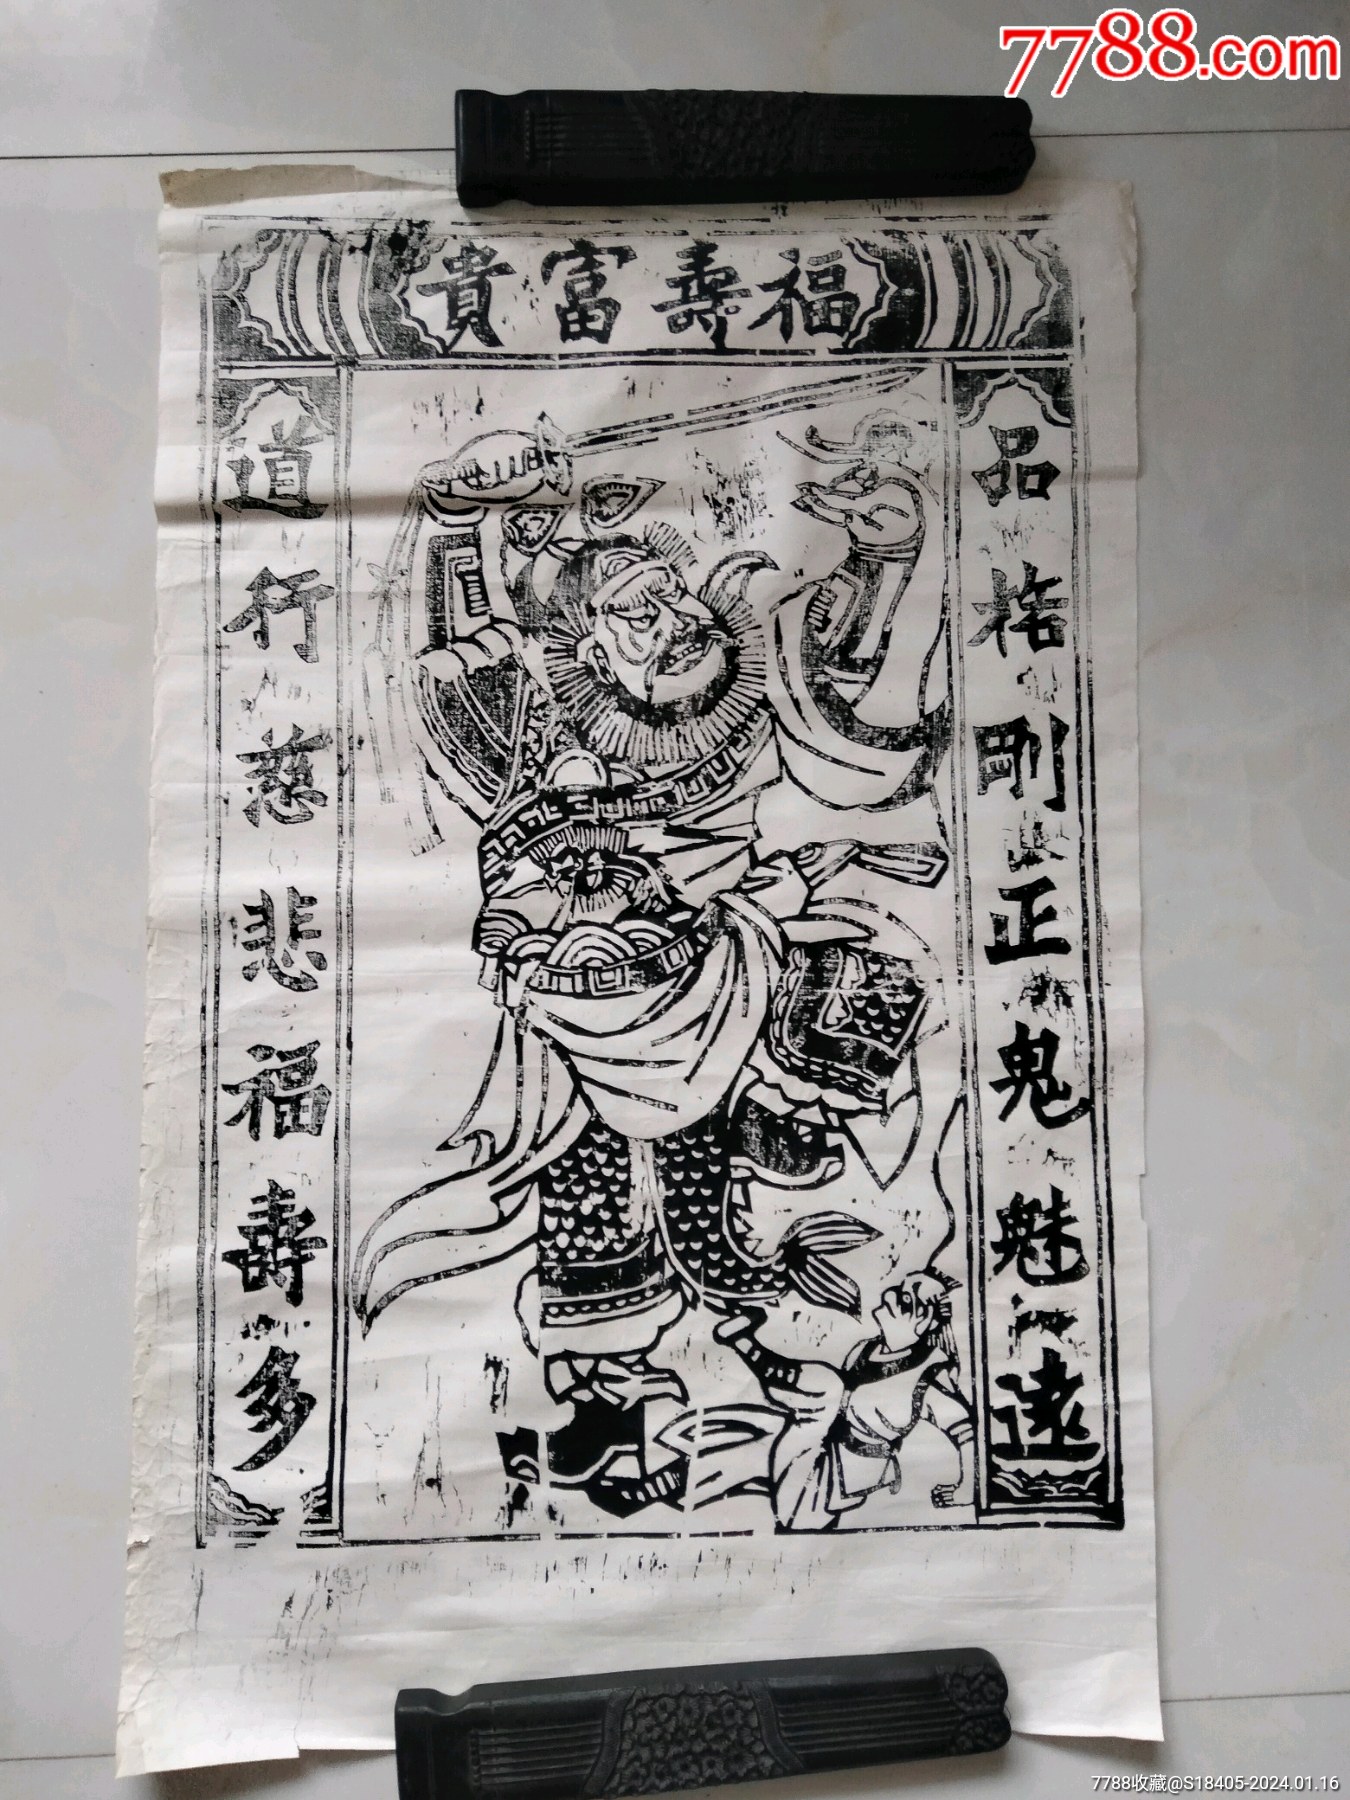 7788.com
福壽富貴
品格剛正鬼魅遠
道行慈悲福壽多
7788收藏@S18405-2024.01.16